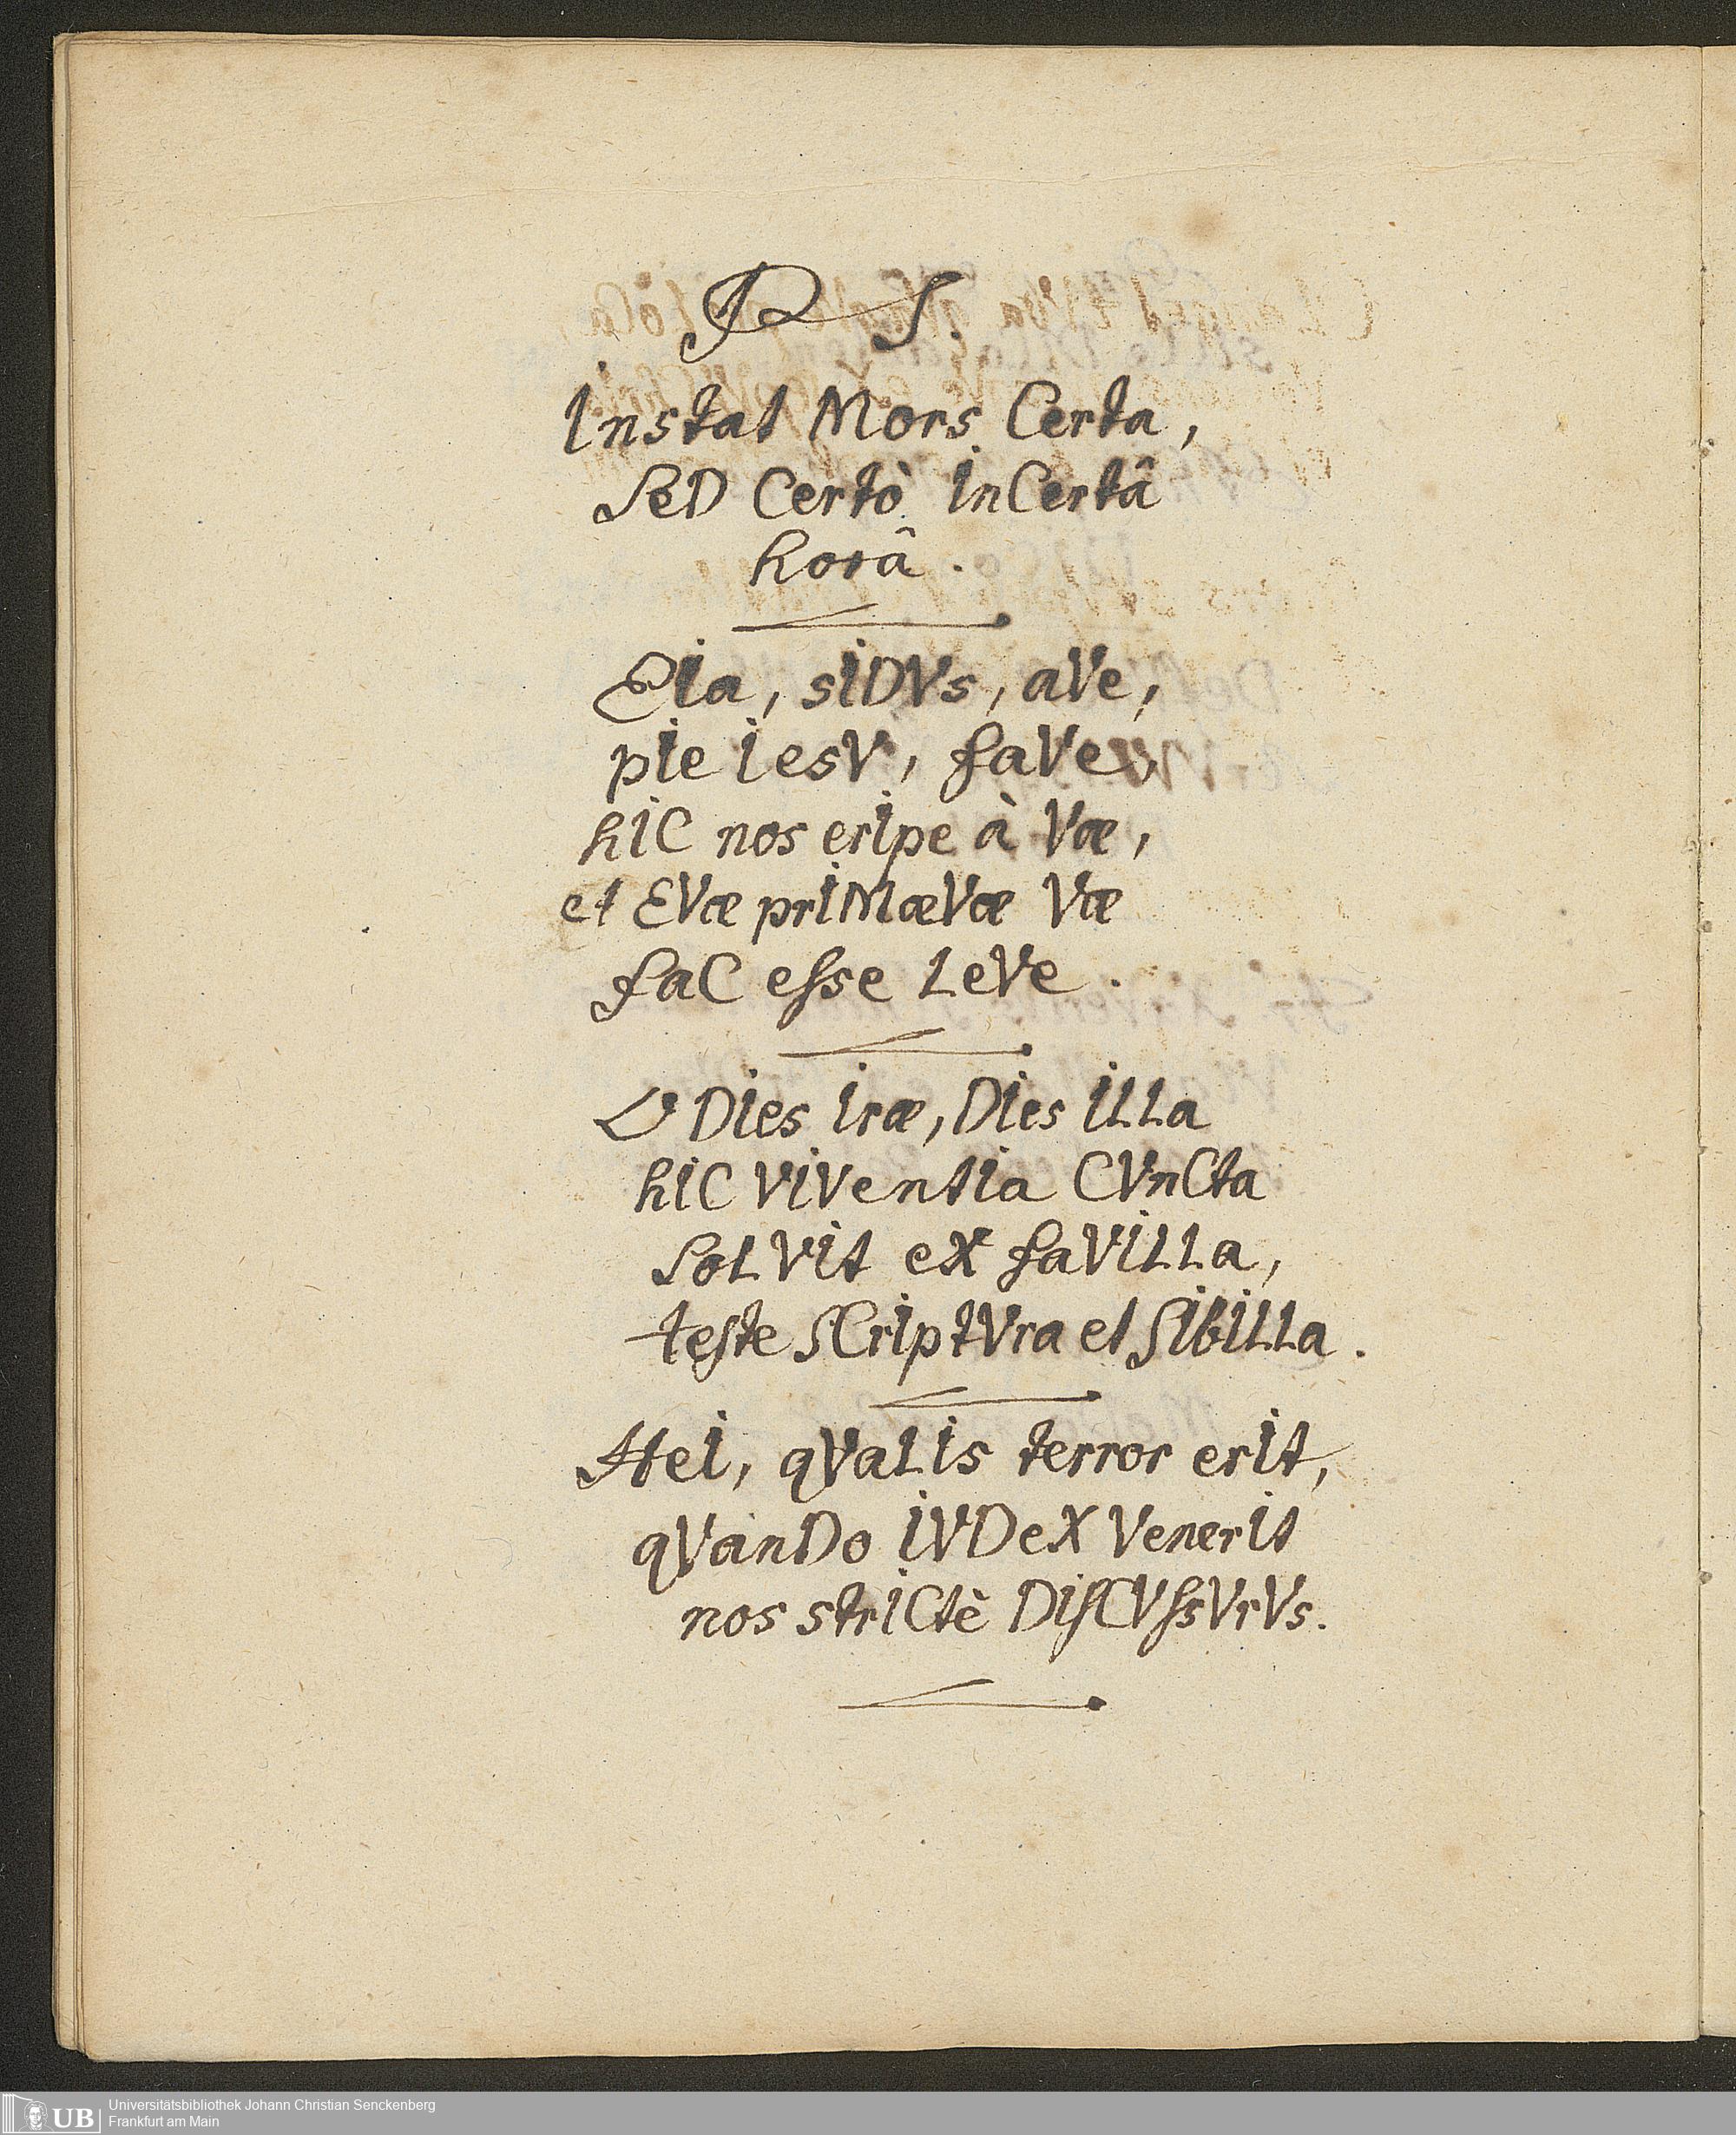 P S.
Instat Mors Certa,
SeD Certò InCertâ
horâ.
EIa, sIDVs, aVe,
pIe IesV, faVe,
hIC nos erIpe à Væ,
et EVæ prIMæVæ Væ
faC eſse LeVe.
O DIes Iræ, DIes ILLa
hIC VIVentIa CVnCta
soLVIt eX faVILLa,
teſte SCrIptVra et SIbILLa.
HeI, qVaLIs terror erIt,
qVanDo IVDeX VenerIt
nos strICtè DIſCVſsVrVs.
UB Universitätsbibliothek Johann Christian Senckenberg
Frankfurt am Main